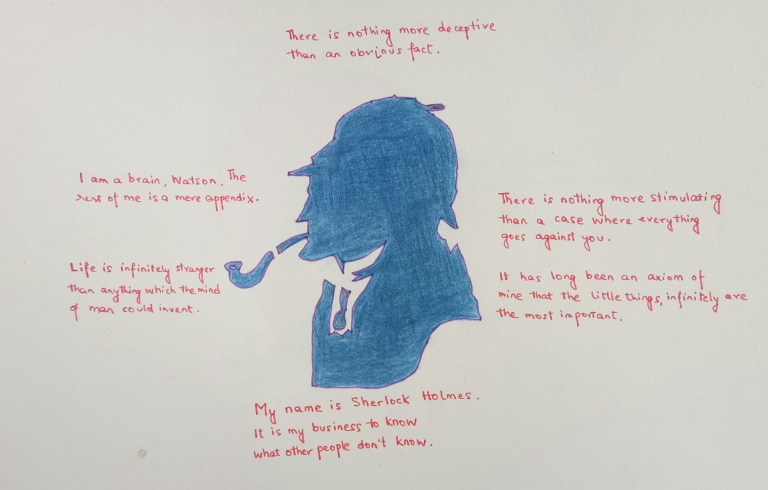 There is nothing more deceptive
than an obvious fact.
I am a brain, Watson. The
rest of me is a mere appendix.
Life is infinitely stranger
than anything which the mind
of man could invent.
There is nothing more stimulating
than a case where everything
goes against you.
It has long been an axiom of
mine that the little things, infinitely are
the most important.
My name is Sherlock Holmes.
It is my business to know
what other people don't know.